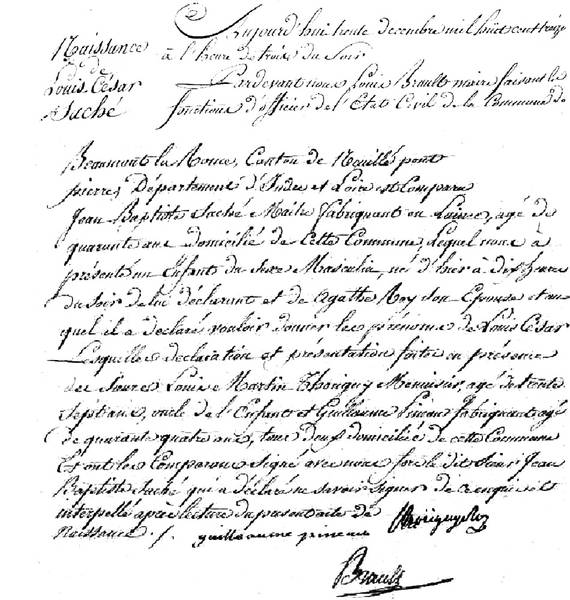 Naissance
de
Louis César
Saché
Aujourd'hui trente decembre mil huit cent treize
à l'heure de trois du Soir
Pardevant nous Louis Brault maire faisant les
fonctions d'officier de l'Etat Civil de la Commune de
Beaumont la Ronce, Canton de Neuillé pont
pierre, Département d'Indre et Loire est Comparu
Jean Baptiste Saché Maitre fabriquant en Laine, agé de
quarante ans domicilié de Cette Commune, Lequel nous à
présenté un Enfant du Sexe Masculin, né d'hier à dix heures
du Soir de lui déclarant et de Agathe Roy son Epouse et au
quel il a déclaré vouloir donner les prénoms de Louis César
Lesquelles déclaration et présentation faite en présence
des Sieures Louis Martin Thoriguy Menuisier, agé de trente
Sept ans, oncle de l'Enfant et Guillaume Pineau fabriquant agé
de quarante quatre ans, tous deux domiciliés de cette Commune
Et ont les Comparans Signé avec nous fors le dit Sieur Jean
Baptiste Saché qui a déclaré ne savoir Signer de ce enquis et
interpellé après lecture du présent acte de
Naissance ./.
guilleaume pineau
Brault